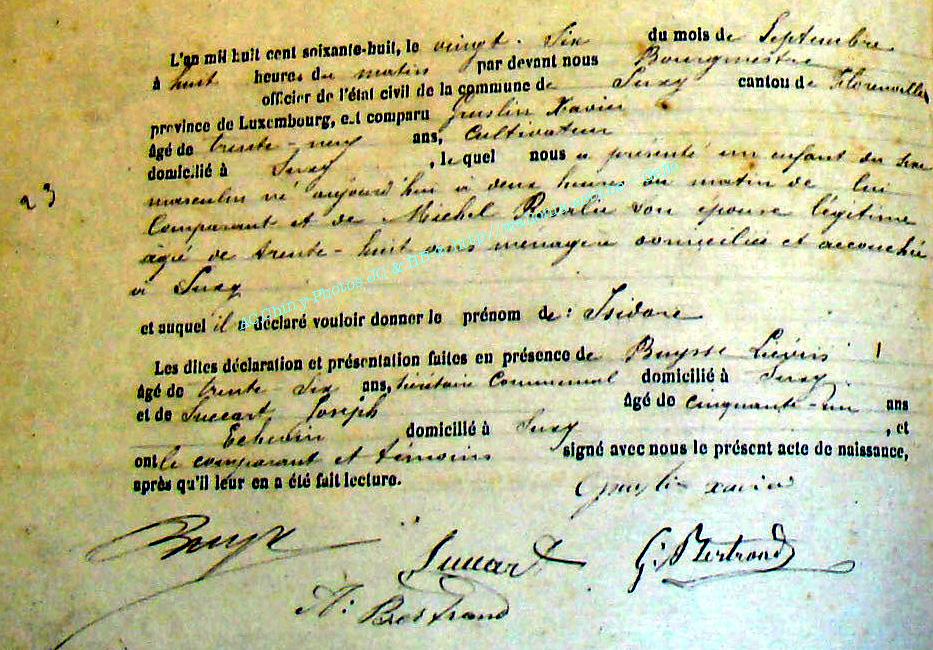 L'an mil huit cent soixante-huit, le vingt-six du mois de Septembre
à huit heures du matin par devant nous Bourgmestre
officier de l'état civil de la commune de Suxy canton de Florenville
province de Luxembourg, est comparu Goislin Xavier
âgé de trente-neuf ans, Cultivateur
domicilié à Suxy, lequel nous a présenté un enfant du sexe
23
masculin né aujourd'hui à deux heures du matin de lui
Comparant et de Michel Rosalie son épouse légitime
âgée de trente-huit ans ménagère domiciliée et accouchée
à Suxy
et auquel il a déclaré vouloir donner le prénom de : Isidore
Les dites déclaration et présentation faites en présence de Buysse
âgé de trente-six ans, secrétaire Communal domicilié à Suxy
et de Succart Joseph âgé de cinquante-un ans
Echevin domicilié à Suxy, et
ont le comparant et témoins signé avec nous le présent acte de naissance,
après qu'il leur en a été fait lecture.
Xavier
Succart G. Bertrand